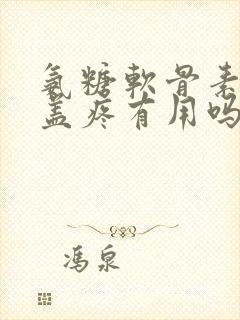 氨糖軟骨素
盖疼有用吗
冯泉